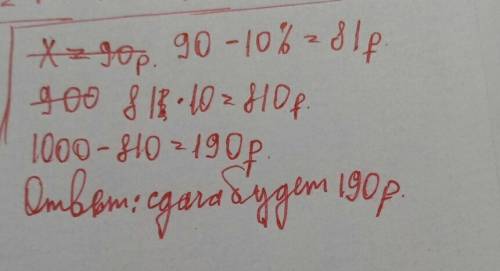 х = 90р. 90 - 10% = 81р.
900 81 · 10 = 810р.
1000 - 810 = 190р.
Ответ: сдача будет 190р.